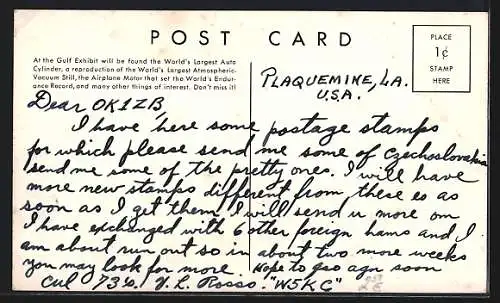 POST CARD
PLACE
1¢
STAMP
HERE
At the Gulf Exhibit will be found the World's Largest Auto
Cylinder, a reproduction of the World's Largest Atmospheric-
Vacuum Still, the Airplane Motor that set the World's Endur-
ance Record, and many other things of interest. Don't miss it!
PLAQUEMINE, LA.
U.S.A.
Dear OK1ZB,
I have here some postage stamps
for which please send me some of Czechoslovakia
send me some of the pretty ones. I will have
more new stamps different from these es as
soon as I get them I will send u more om
I have exchanged with 6 other foreign hams and I
am about run out so in about two more weeks
you may look for more. Hope to qso agn soon
Cul 73s. V. L. Rosso. "W5KC"